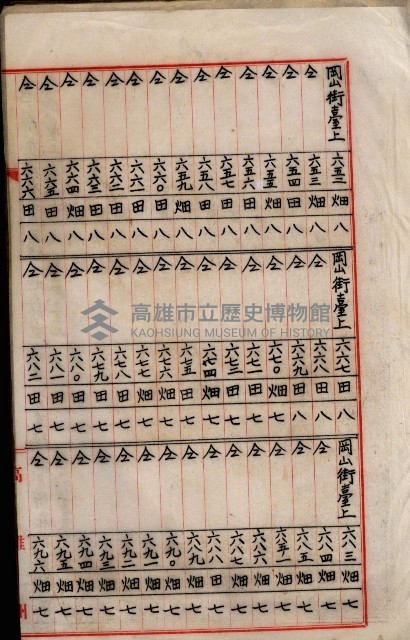 岡山街臺上 六五二 畑 八
仝 六五三 畑 八
仝 六五四 田 八
仝 六五五 畑 八
仝 六五六 田 八
仝 六五七 田 八
仝 六五八 田 八
仝 六五九 畑 八
仝 六六〇 田 八
仝 六六一 田 八
仝 六六二 田 八
仝 六六三 田 八
仝 六六四 畑 八
仝 六六五 田 八
仝 六六六 田 八
岡山街臺上 六六七 田 八
仝 六六八 田 八
仝 六六九 田 八
仝 六七〇 畑 七
仝 六七一 田 七
仝 六七三 田 七
仝 六七四 畑 七
仝 六七五 田 七
仝 六七六 畑 七
仝 六七七 畑 七
仝 六七八 田 七
仝 六七九 田 七
仝 六八〇 田 七
仝 六八一 田 七
仝 六八二 田 七
岡山街臺上 六八三 畑 七
仝 六八四 畑 七
仝 六八五 畑 七
仝 六八五ノ一 畑 七
仝 六八六 畑 七
仝 六八七 畑 七
仝 六八八 田 七
仝 六八九 畑 七
仝 六九〇 畑 七
仝 六九一 畑 七
仝 六九二 畑 七
仝 六九三 畑 七
仝 六九四 畑 七
仝 六九五 畑 七
仝 六九六 畑 七
高雄州
高雄市立歷史博物館
KAOHSIUNG MUSEUM OF HISTORY